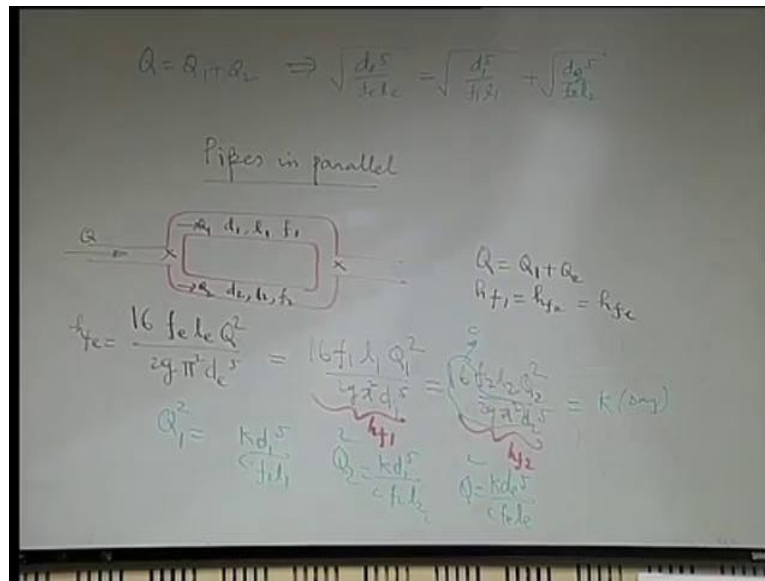 Q = Q₁ + Q₂ ⟹ √(dₑ⁵/fₑlₑ) = √(d₁⁵/f₁l₁) + √(d₂⁵/f₂l₂)
Pipes in parallel
Q → Q₁ d₁, l₁, f₁
→ Q₂ d₂, l₂, f₂
Q = Q₁ + Q₂
hf₁ = hf₂ = hfₑ
hfₑ = 16 fₑ lₑ Q² / 2g π² dₑ⁵ = 16 f₁ l₁ Q₁² / 2g π² d₁⁵ = 16 f₂ l₂ Q₂² / 2g π² d₂⁵ = K (say)
C
hf₁ hf₂
Q₁² = K d₁⁵ / C f₁ l₁ Q₂² = K d₂⁵ / C f₂ l₂ Q² = K dₑ⁵ / C fₑ lₑ